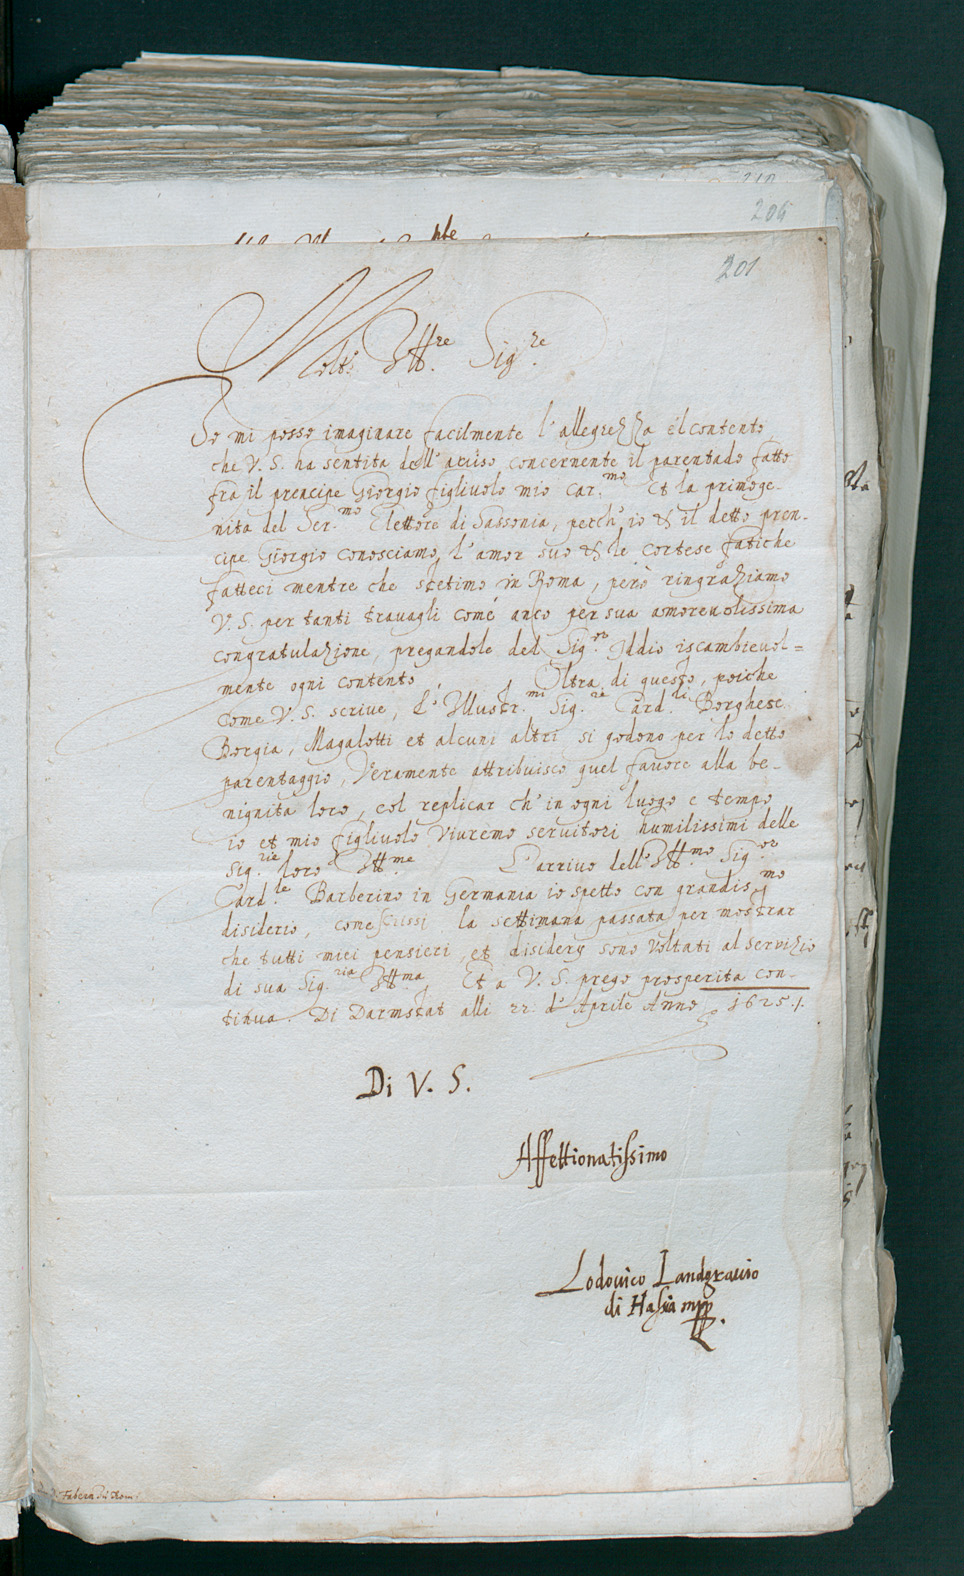 206
201
Molto Ill.re Sig.re
Io mi posso imaginare facilmente l'allegrezza e'l contento
che V. S. ha sentita dell'aviso concernente il parentado fatto
fra il prencipe Giorgio figlivolo mio car.mo Et la primoge-
nita del Ser.mo Elettore di Sassonia, perch' io & il detto pren-
cipe Giorgio conosciamo l'amor suo & le cortese fatiche
fatteci mentre che stetimo in Roma, però ringraziamo
V. S. per tanti travagli come anco per sua amorevolissima
congratulazione, pregandole del Sig.or Iddio iscambievol=
mente ogni contento. Oltra di questo, poiche
come V. S. scrive, l'Illustr.mi Sig.rie Card.li Borghese
Borgia, Magalotti et alcuni altri si godono per lo detto
parentaggio, Veramente attribuisco quel favore alla be-
nignita loro, col replicar ch'in ogni luogo e tempo
io et mio figlivolo vivremo servitori humilissimi delle
Sig.rie loro Ill.me L'arrivo dell'Ill.mo Sig.or
Card.le Barberino in Germania io spetto con grandis.mo
disiderio, come scrissi la settimana passata per mostrar
che tutti miei pensieri et disidery sono voltati al servizio
di sua Sig.ria Ill.ma Et a V. S. prego prosperita con-
tinua. Di Darmstat alli 22 d'Aprile Anno 1625 /.
Di V. S.
Affettionatissimo
Lodovico Landgravio
di Hassia mpp.
Faber in Rom